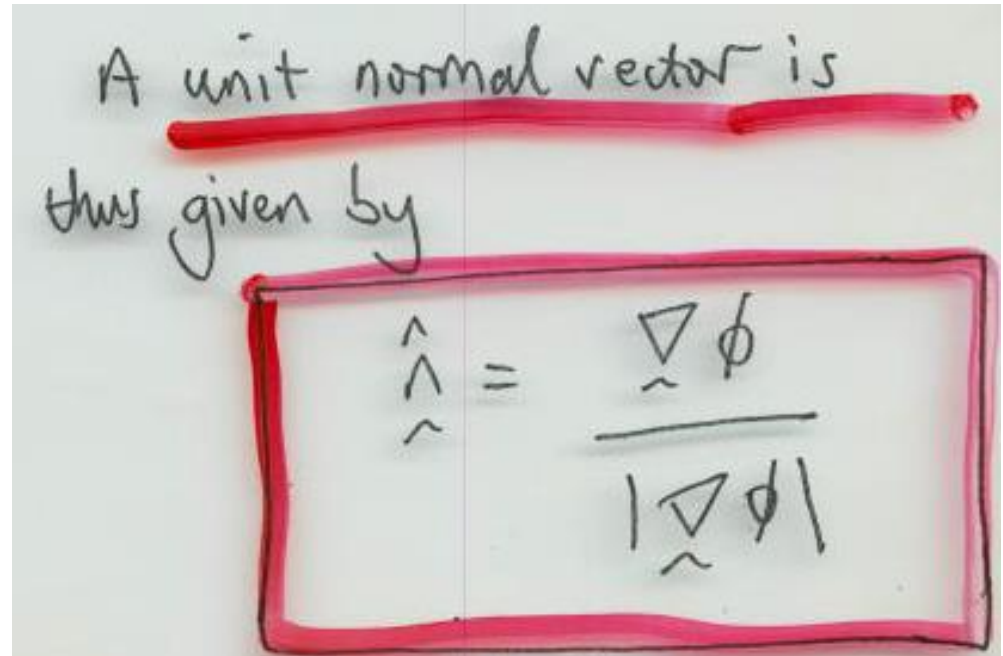 A unit normal vector is
thus given by
n̰̂ = ∇̰ϕ / |∇̰ϕ|